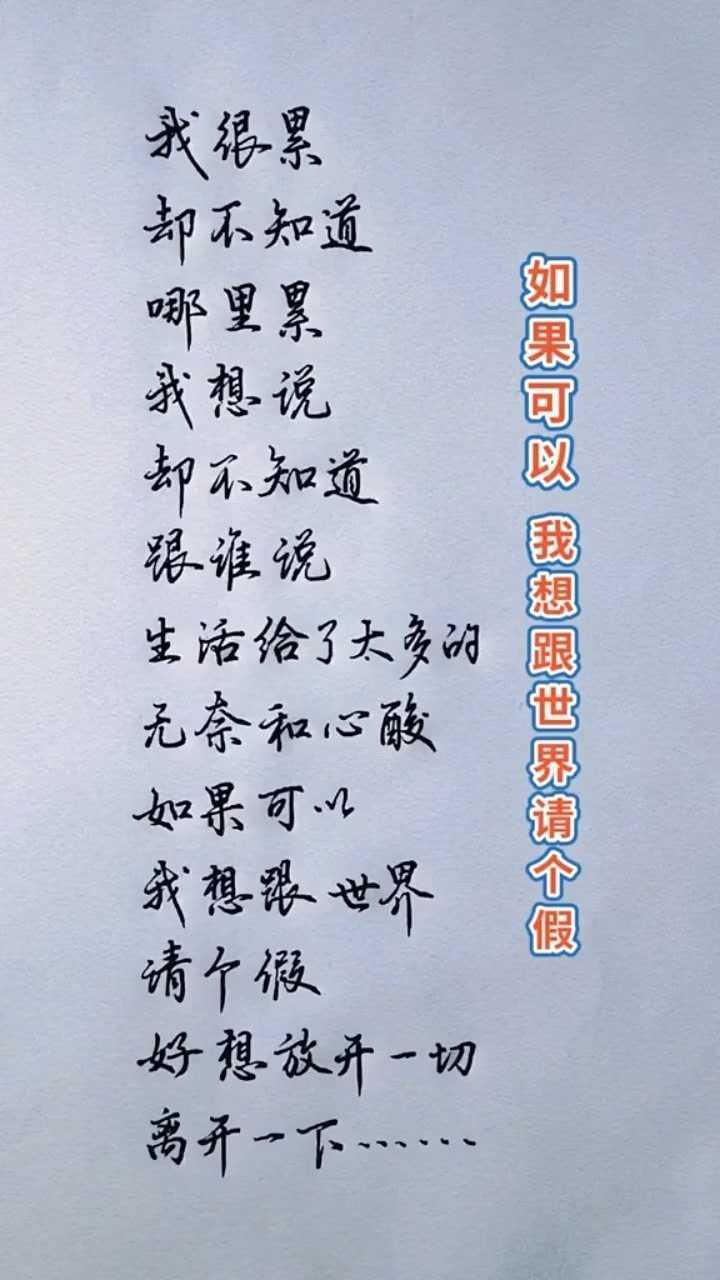 我很累
却不知道
哪里累
我想说
却不知道
跟谁说
生活给了太多的
无奈和心酸
如果可以
我想跟世界
请个假
好想放开一切
离开一下……
如果可以 我想跟世界请个假